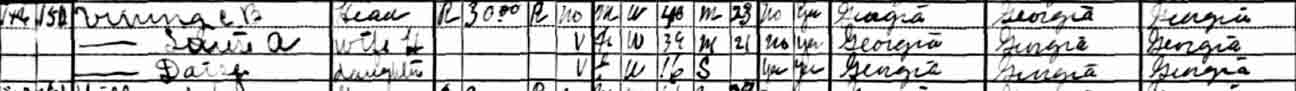 Vining C B Head R 30.00 R no M W 40 M 23 no yes Georgia Georgia Georgia
— A Wife H V F W 39 M 21 no yes Georgia Georgia Georgia
— Daisy daughter V F W 16 S yes yes Georgia Georgia Georgia